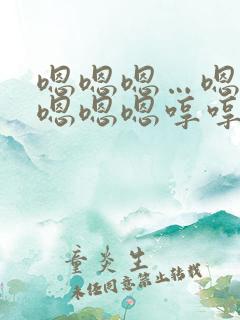 嗯嗯嗯…嗯
嗯嗯嗯哼哼
童炎生
未经同意禁止转载